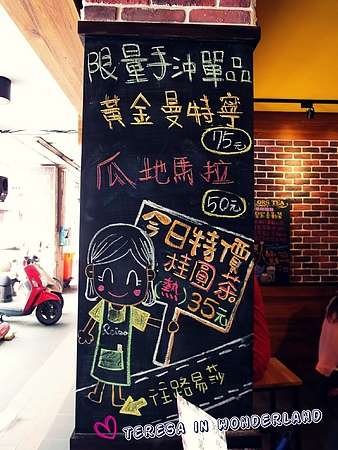 限量手沖單品
黃金曼特寧
75元
瓜地馬拉
50元
今日特價
桂圓茶
(熱) 35元
往路易莎
TERESA IN WONDERLAND